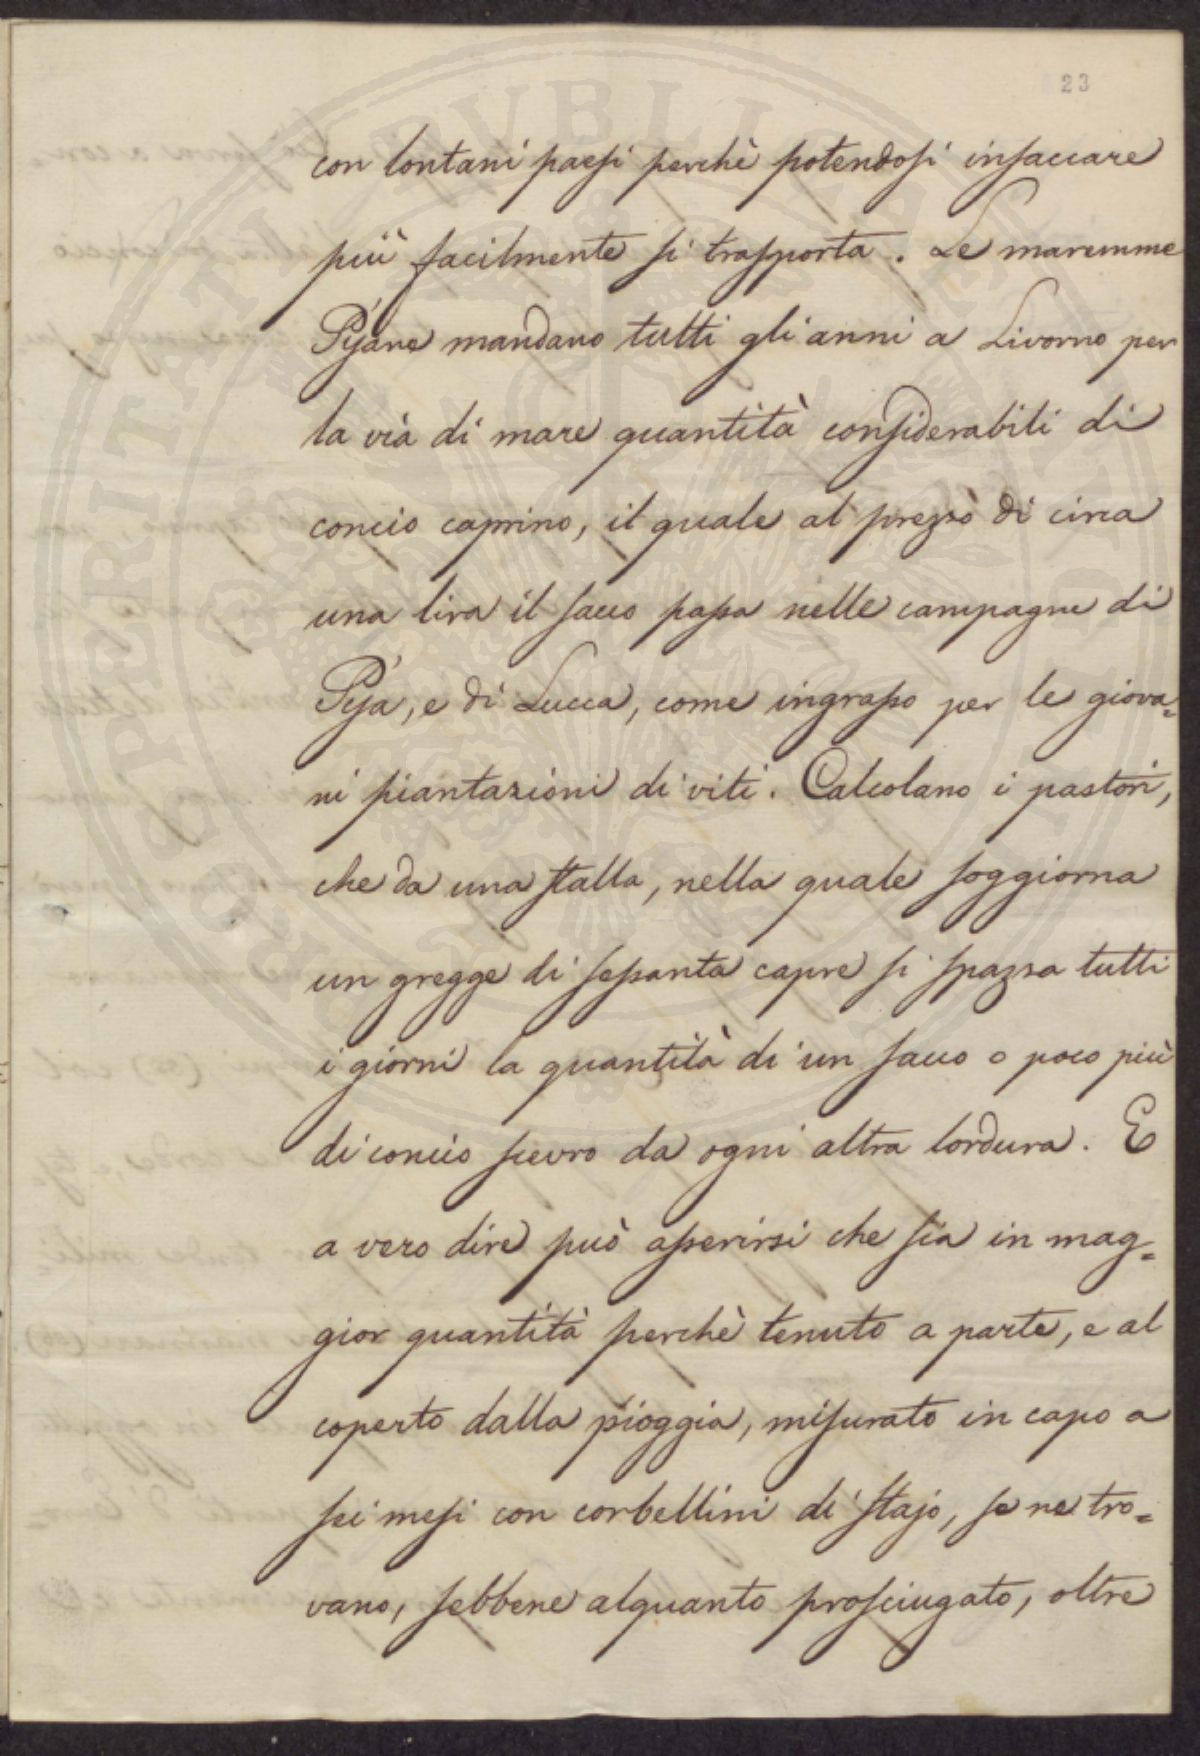 23
con lontani paesi perchè potendosi insaccare
più facilmente si trasporta. Le maremme
Pisane mandano tutti gli anni a Livorno per
la via di mare quantità considerabili di
concio caprino, il quale al prezzo di circa
una lira il sacco passa nelle campagne di
Pisa, e di Lucca, come ingrasso per le giova=
ni piantazioni di viti. Calcolano i pastori,
che da una stalla, nella quale soggiorna
un gregge di sessanta capre si spazza tutti
i giorni la quantità di un sacco o poco più
di concio scevro da ogni altra lordura. E
a vero dire può asserirsi che sia in mag=
gior quantità perchè tenuto a parte, e al
coperto dalla pioggia, misurato in capo a
sei mesi con corbellini di stajo, se ne tro=
vano, sebbene alquanto prosciugato, oltre